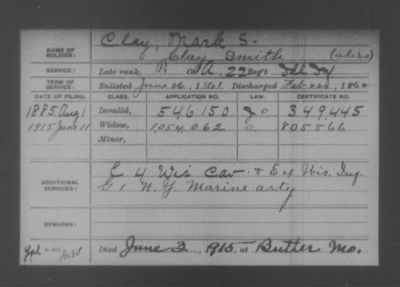 Clay, Mark S.
NAME OF SOLDIER: Clay Smith (alias)
SERVICE: Late rank, P, Co. A, 22 Reg't Ill Inf
TERM OF SERVICE: Enlisted June 26, 1861 Discharged Feb 1862
DATE OF FILING. CLASS. APPLICATION NO. LAW. CERTIFICATE NO.
1885 Aug 1 Invalid, 546.150 349.445
1915 June 11 Widow, 1,054,062 805566
Minor,
ADDITIONAL SERVICES: E 4 Wis Cav. & E 4 Wis. Inf.
G 1 N.Y. Marine arty
REMARKS:
Died June 3, 1915, at Butler Mo.